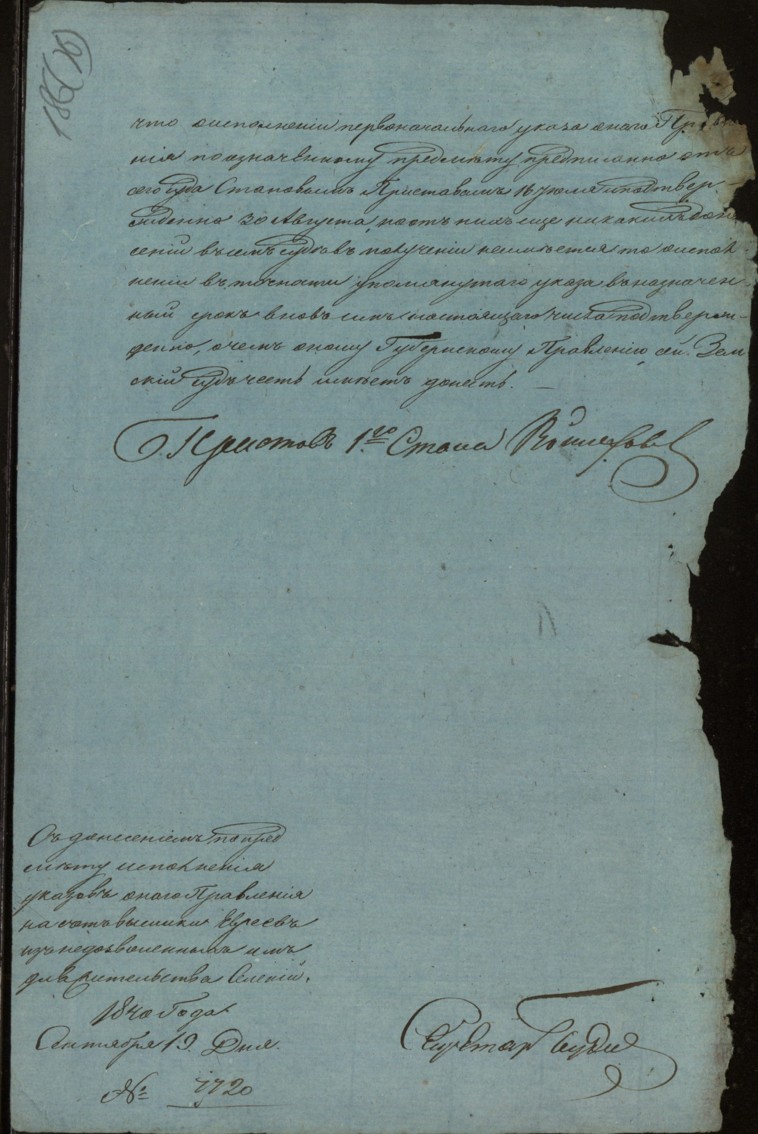 186(об)
что оисполнении первоначальнаго указа онаго Правле
нія по означенному предмету предписанно отъ
сего Суда Становымъ Приставамъ 16 Іюля иподтвер-
жденно 30 Августа, но отъ нихъ еще никакихъ доне
сеній въ семъ Судѣ въ полученіи неимѣется то оиспол
неніи въ точности упомянутаго указа въ назначен-
ный срокъ вновь имъ настоящаго числа подтверж-
денно, очемъ оному Губернскому Правленію сей Зем
скій Судъ честь имѣетъ донесть. —
Приставъ 1го Стана
Съ донесеніемъ по пред
мѣту исполненія
указовъ онаго Правленія
на счетъ высылки Евреевъ
изъ недозволенныхъ имъ
для жительства Селеній.
1840 Года
Сентября 19 Дня
№ 7720
Секретарь